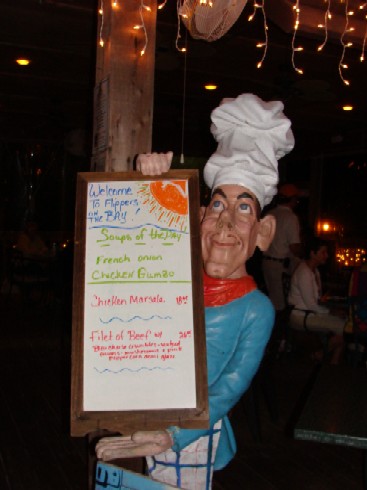 Welcome
To Flippers
on The BAY!
Soups of the Day
French onion
Chicken Gumbo
Chicken Marsala 18
Filet of Beef w/ 26
Bleu cheese crumbles